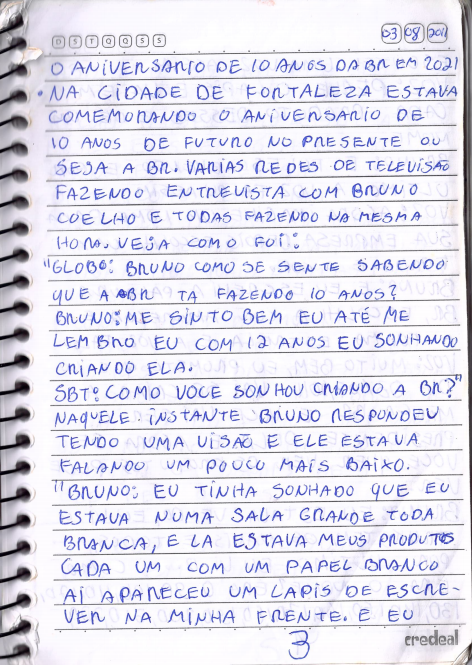 D S T Q Q S S
03 08 2011
O ANIVERSARIO DE 10 ANOS DA BR EM 2021
• NA CIDADE DE FORTALEZA ESTAVA
COMEMORANDO O ANIVERSARIO DE
10 ANOS DE FUTURO NO PRESENTE OU
SEJA A BR. VARIAS REDES DE TELEVISÃO
FAZENDO ENTREVISTA COM BRUNO
COELHO E TODAS FAZENDO NA MESMA
HORA. VEJA COMO FOI:
"GLOBO: BRUNO COMO SE SENTE SABENDO
QUE A BR TA FAZENDO 10 ANOS?
BRUNO: ME SINTO BEM EU ATÉ ME
LEMBRO EU COM 12 ANOS EU SONHANDO
CRIANDO ELA.
SBT: COMO VOCE SONHOU CRIANDO A BR?"
NAQUELE INSTANTE BRUNO RESPONDEU
TENDO UMA VISÃO E ELE ESTAVA
FALANDO UM POUCO MAIS BAIXO.
"BRUNO: EU TINHA SONHADO QUE EU
ESTAVA NUMA SALA GRANDE TODA
BRANCA, E LA ESTAVA MEUS PRODUTOS
CADA UM COM UM PAPEL BRANCO
AI APARECEU UM LAPIS DE ESCRE-
VER NA MINHA FRENTE. E EU
3
credeal